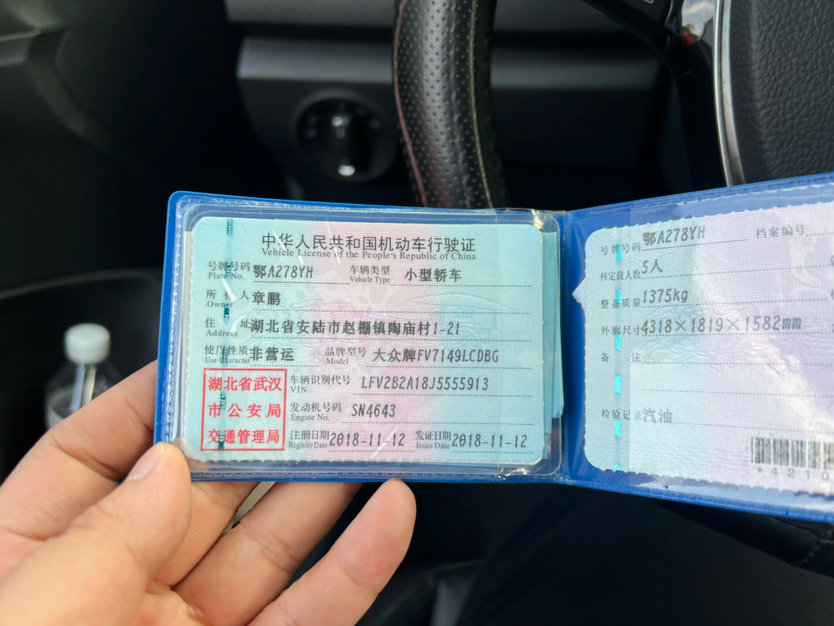 中华人民共和国机动车行驶证
Vehicle License of the People's Republic of China
号牌号码 鄂A278YH 车辆类型 小型轿车
Plate No. Vehicle Type
所有人 章鹏
Owner
住址 湖北省安陆市赵棚镇陶庙村1-21
Address
使用性质 非营运 品牌型号 大众牌FV7149LCDBG
Use Character Model
湖北省武汉
市公安局
交通管理局
车辆识别代号 LFV2B2A18J5555913
VIN
发动机号码 SN4643
Engine No.
注册日期 2018-11-12 发证日期 2018-11-12
Register Date Issue Date
号牌号码 鄂A278YH 档案编号
核定载人数 5人
整备质量 1375kg
外廓尺寸 4318×1819×1582mm
备注
检验记录 汽油
*4210